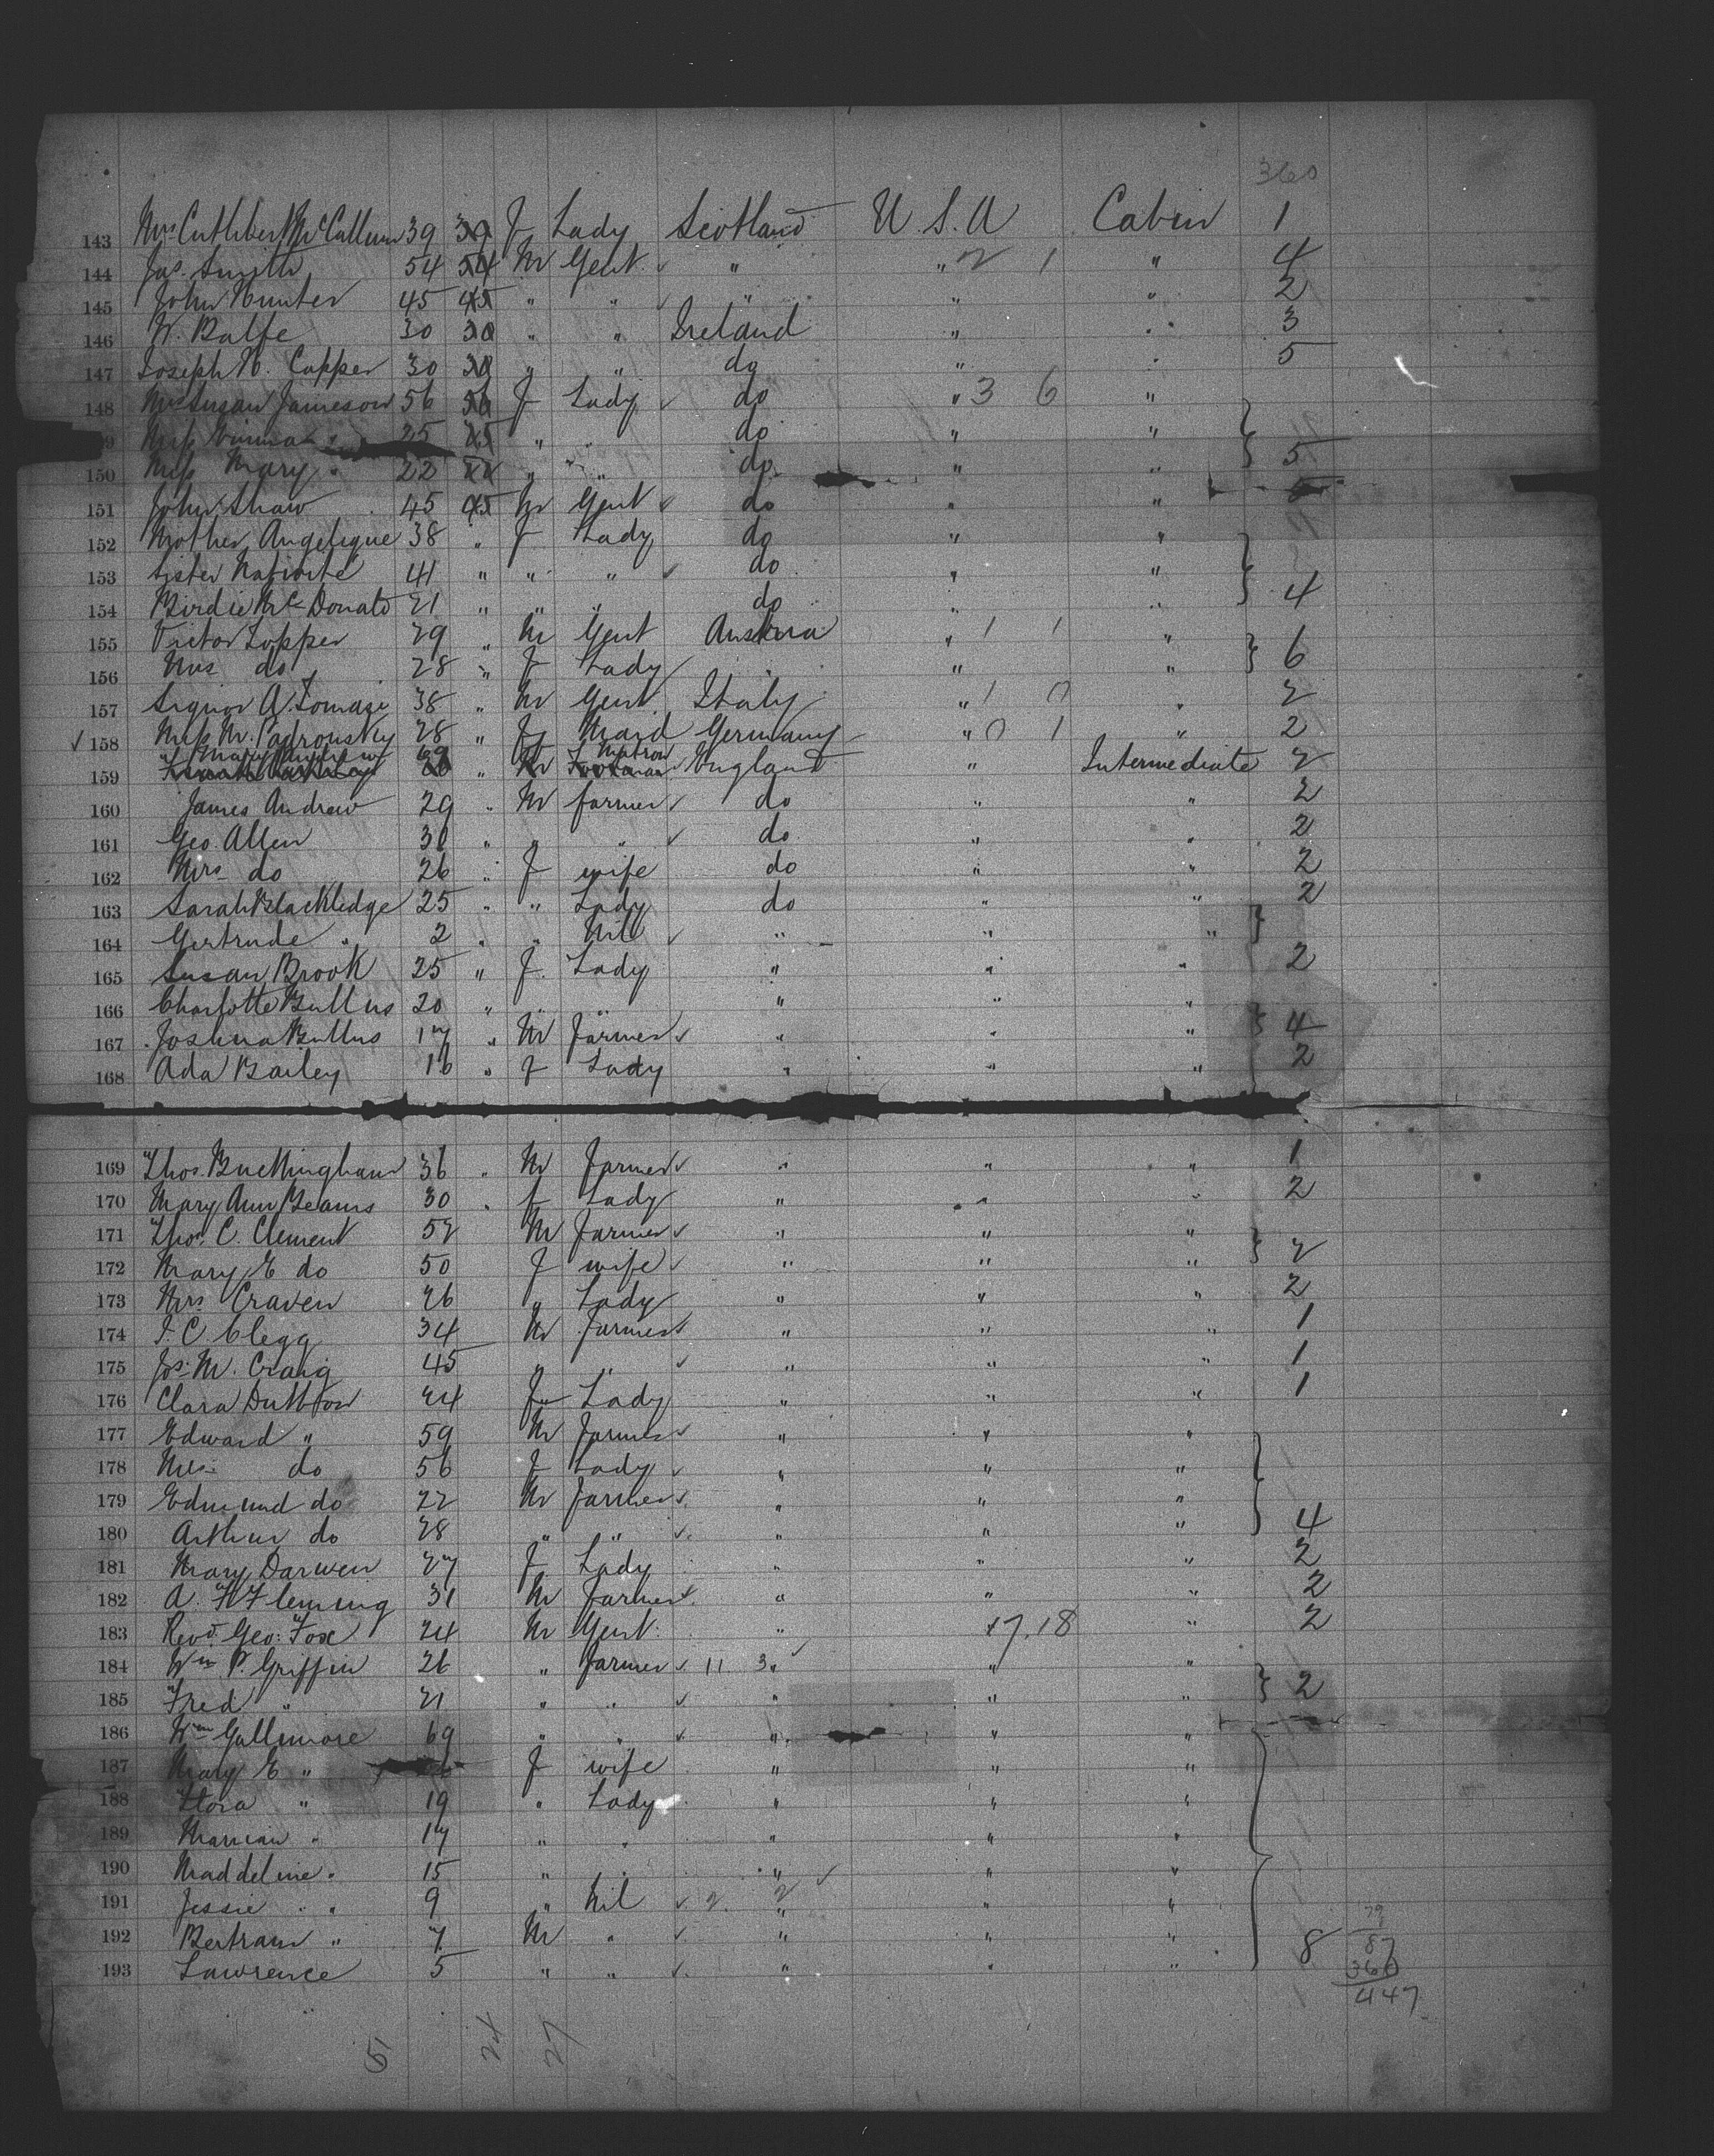 360
143 Mrs Cuthbert McCallum 39 39 f Lady Scotland U.S.A Cabin 1
144 Jas. Smith 54 54 M Gent " " 2 1 " 4
145 John Hunter 45 45 " " " " " 2
146 W. Balfe 30 30 " " Ireland " " 3
147 Joseph N. Copper 30 30 " " do " " 5
148 Mrs Susan Jameson 56 56 f Lady do " 3 6 "
Miss " 25 25 " " do " "
150 Miss Mary " 22 " " do " " 5
151 John Shaw 45 45 M Gent do " "
152 Mother Angelique 38 " f Lady do " "
153 Sister 41 " " " do " "
154 Birdie McDonald 21 " " " do " " 4
155 Victor Lopper 29 " M Gent Austria " 1 1 "
156 Mrs do 28 " f Lady " " 6
157 Signor A. Tomasi 38 " M Gent Italy " 1 0 " 2
158 Miss M. Padronsky 28 " f Maid Germany " 0 1 " 2
159 Mary Andrew 69 " f Matron England " Intermediate 2
160 James Andrew 29 " M farmer do " " 2
161 Geo. Allen 30 " " " do " " 2
162 Mrs do 26 " f wife do " " 2
163 Sarah Blackledge 25 " " Lady do " " 2
164 Gertrude " 2 " " Nil " " "
165 Susan Brook 25 " f. Lady " " " 2
166 Charlotte Bullus 20 " " " " " "
167 Joshua Bullus 17 " M Farmer " " " 4
168 Ada Bailey 16 " f Lady " " " 2
169 Thos. Buckingham 36 " M Farmer " " " 1
170 Mary Ann Beams 30 " f Lady " " " 2
171 Thos. C. Clement 52 M Farmer " " "
172 Mary E do 50 f wife " " " 2
173 Mrs Craven 26 " Lady " " " 2
174 J. C. Clegg 34 M Farmer " " " 1
175 Jos. M. Craig 45 " " " " " 1
176 Clara Dutton 24 f Lady " " " 1
177 Edward " 59 M Farmer " " "
178 Mrs do 56 f Lady " " "
179 Edmund do 22 M Farmer " " "
180 Arthur do 28 " " " " " 4
181 Mary Darwen 27 f Lady " " " 2
182 A. H Fleming 31 M Farmer " " " 2
183 Revd. Geo: Fox 24 M Gent. " 17.18 " 2
184 Wm P. Griffin 26 " Farmer 11 3 " " "
185 Fred " 21 " " " " " 2
186 Wm Gallimore 69 " " " " "
187 Mary E " f wife " " "
188 Flora " 19 " Lady " " "
189 Marian " 17 " " " " "
190 Maddeline " 15 " " " " "
191 Jessie " 9 " Nil 2 2 " " "
192 Bertram " 7 M " " " " 8
193 Lawrence 5 " " " " "
79
87
360
447
5 24 27